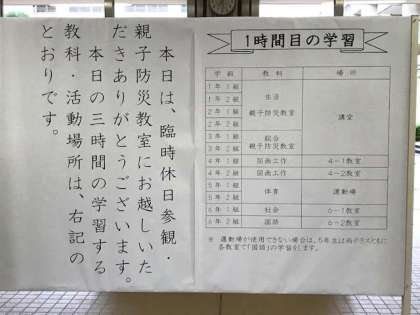 本日は、臨時休日参観・
親子防災教室にお越しいた
だきありがとうございます。
本日の三時間の学習する
教科・活動場所は、右記の
とおりです。
1時間目の学習
学組 教科 場所
1年1組 生活 親子防災教室 講堂
1年2組
2年1組
2年2組
3年1組 総合 親子防災教室
3年2組
4年1組 図画工作 4－1教室
4年2組 図画工作 4－2教室
5年1組 体育 運動場
5年2組
6年1組 社会 6－1教室
6年2組 国語 6－2教室
※ 運動場が使用できない場合は、5年生は両クラスともに
各教室で「国語」の学習をします。